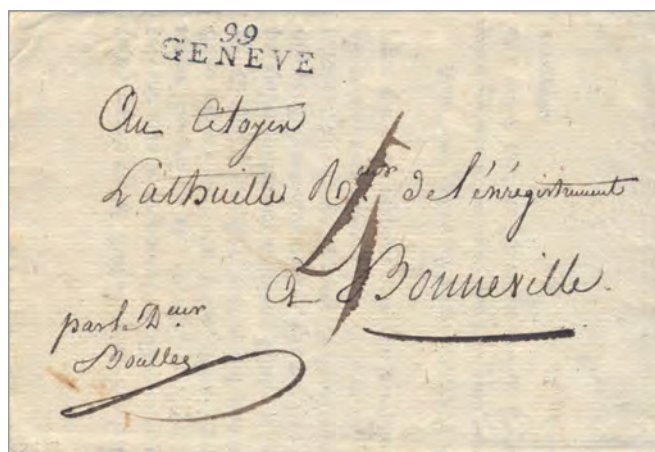 99
GENEVE
Au Citoyen
Lathuille R.eur de l'énregistrement
4
à Bonneville.
par le D.eur